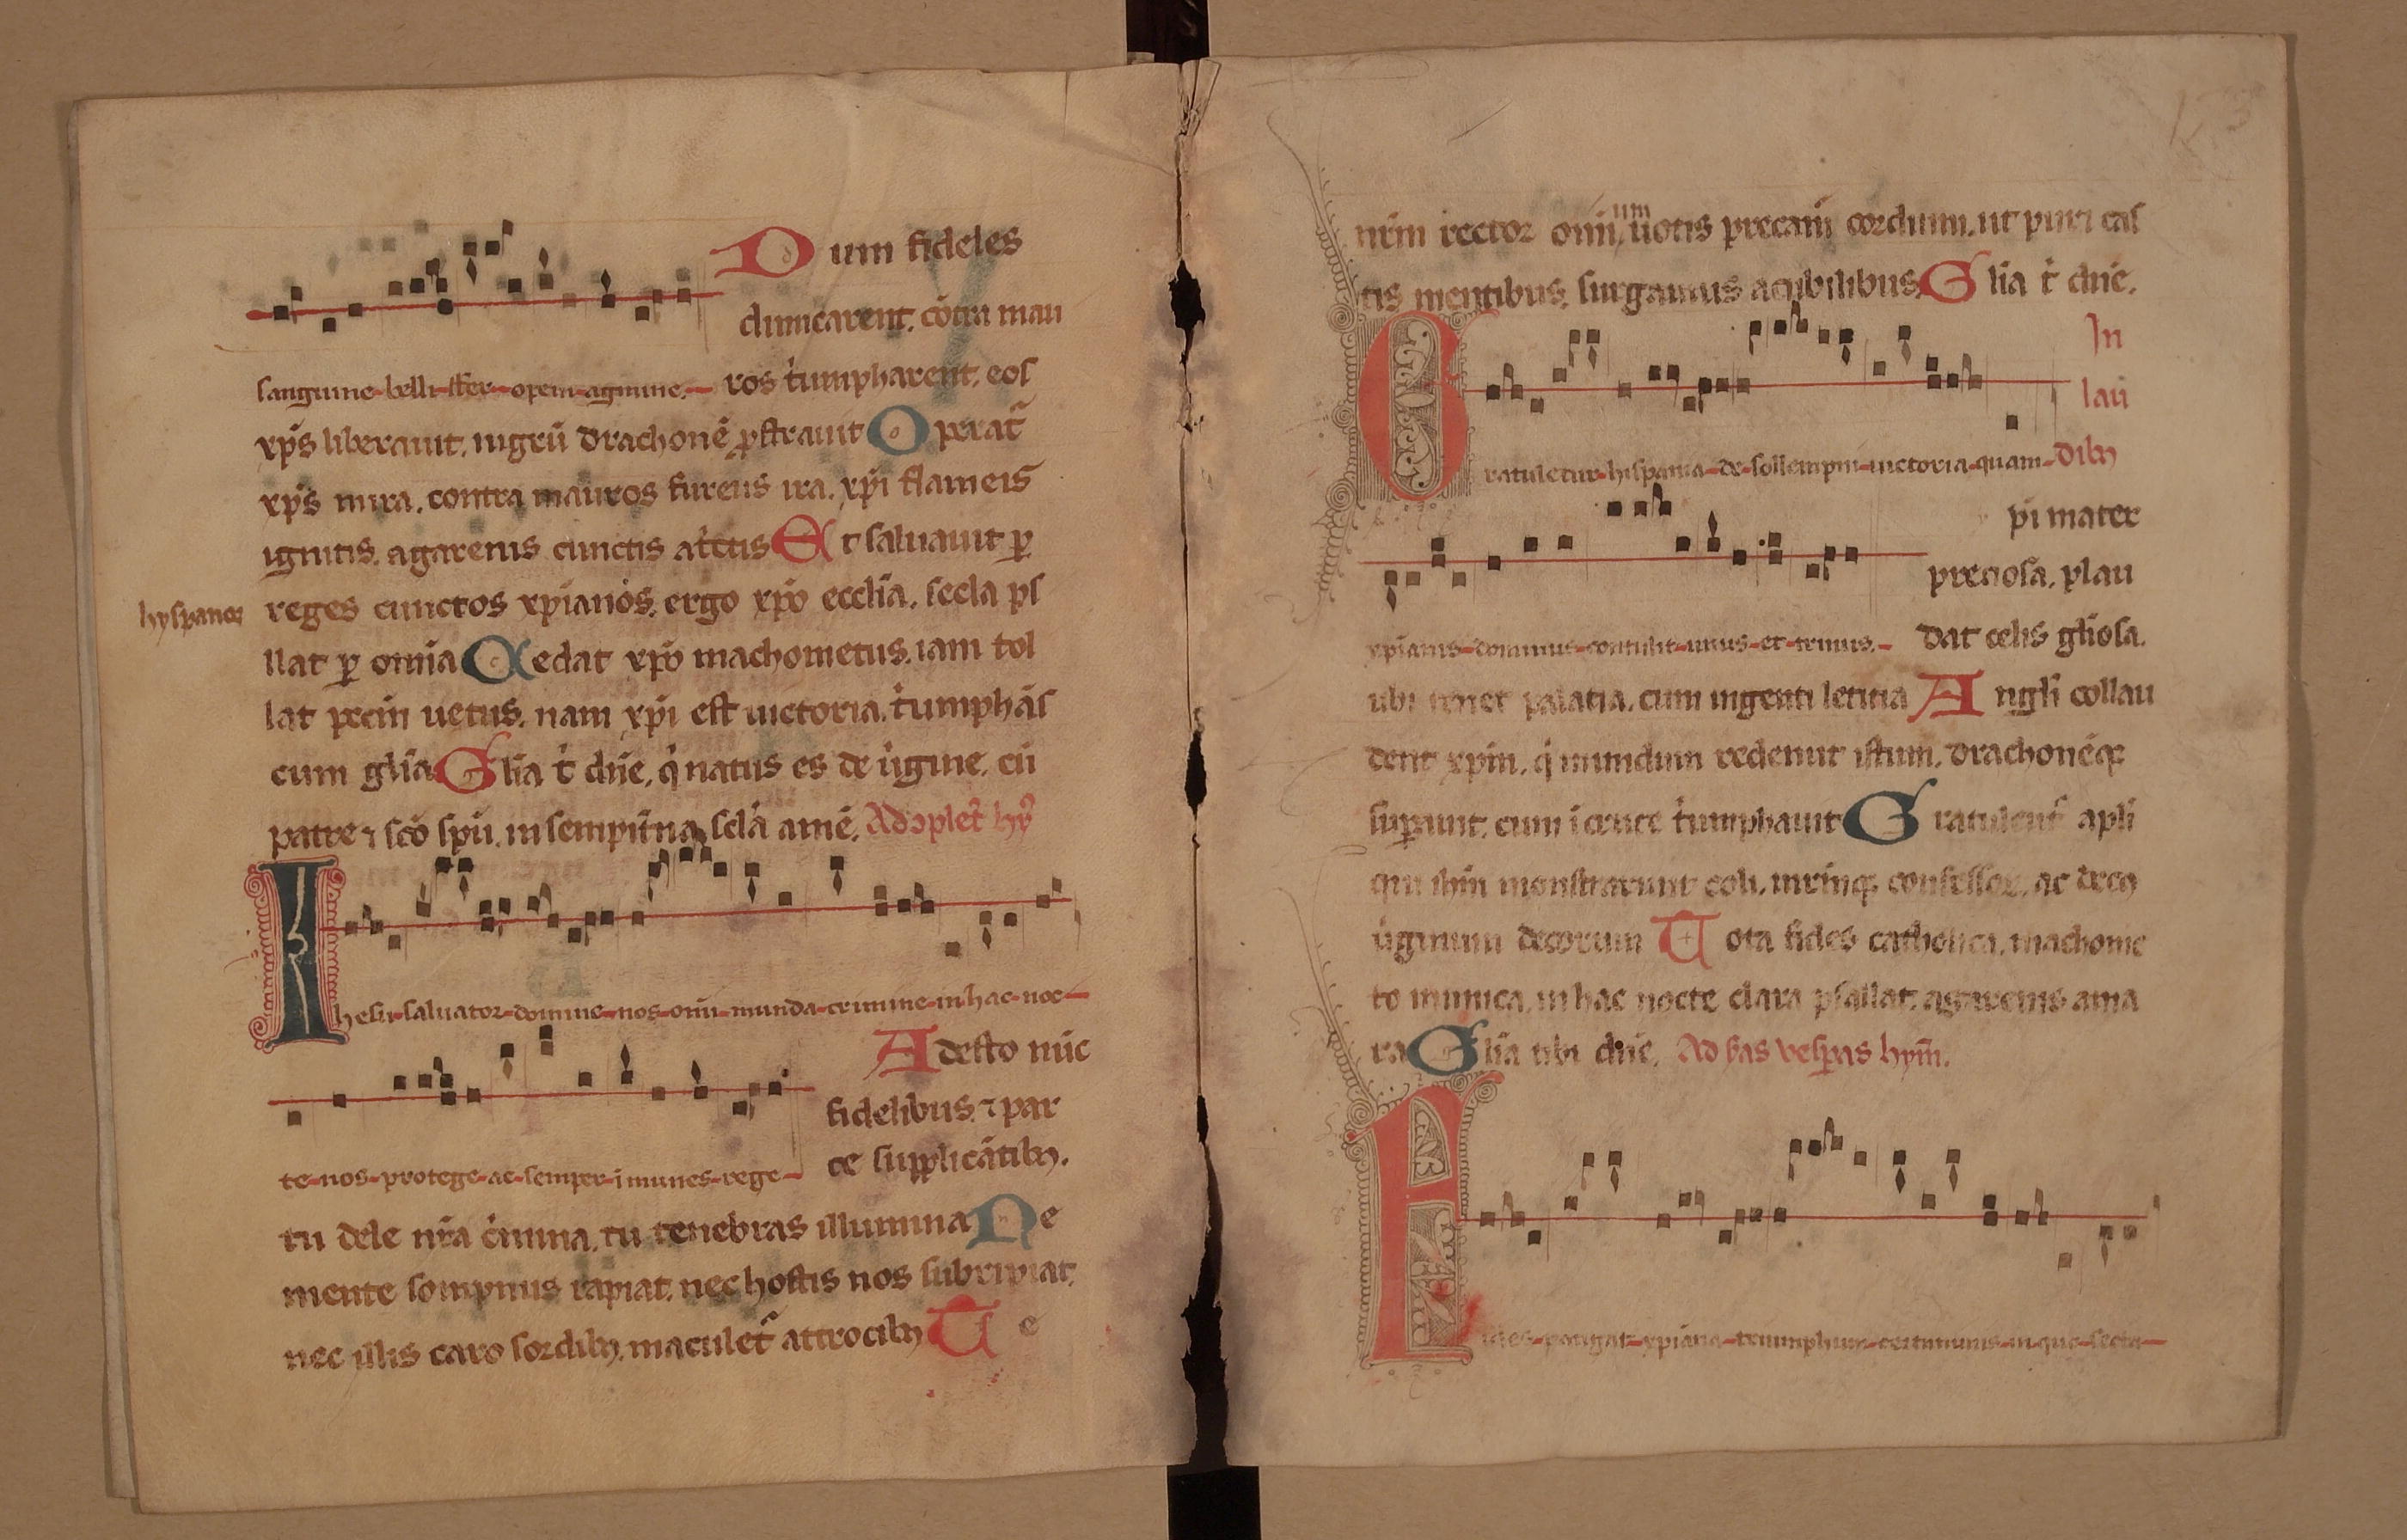 Dum fideles
dimicarent. cōtra mau
sanguine belli fer opem agmine. ros t'umpharent. eos
xp̄s liberauit. nigrū drachonē ꝓstrauit Operat᷑
xp̄s mira. contra mauros furens ira. xp̄i flameis
ignitis. agarenis cunctis
Et saluauit ꝑ
hyspanos
reges cunctos xp̄ianos. ergo xp̄o eccl̄ia. secla ps
llat ꝑ omīa Cedat xp̄o machometus. iam tol
lat uetus. nam xp̄i est uictoria. t'umphās
cum gl̄ia Gl̄ia t' dn̄e, q' natus es de u'gine. cū
patre ⁊ sc̄o spū. in sempit'na scl̄a amē. Ad ꝯplet' hȳ
Ihesu saluator domine nos om̄i munda crimine in hac noc
Adesto nūc
fidelibus. ⁊ par
te nos protege ac semper īmunes rege ce supplicātibꝫ.
tu dele nr̄a c'mina. tu tenebras illumina Ne
mente sompnus rapiat. nec hostis nos subripiat.
nec illis caro sordibꝫ. maculet᷑ attrocibꝫ Te
nr̄m rector om̄ium uotis precam̄ cordium. ut puri cas
tis mentibus. surgamus a cubilibus. Gl̄ia t' dn̄e.
In
lau
Gratuletur hispania de sollempni uictoria quam dibꝫ
pi mater
preciosa. plau
xp̄ianis dominus contulit unus et trinus. dat celis gl̄iosa.
ubi tenet palatia. cum ingenti letitia Angl̄i collau
dent xp̄m. q' mundum redemit istum. drachonēqꝫ
supunt. cum ī cruce t'umphauit Gratulent᷑ apl̄i
qui ih̄m monstrarunt coli. confessor. ac
u'ginum decorum Tota fides catholica. machome
to inimica. in hac nocte clara psallat. agarenis ama
ra Gl̄ia tibi dn̄e. Ad s̄as vesꝑas hym̄.
Fides xp̄iana triumphum in quo secla